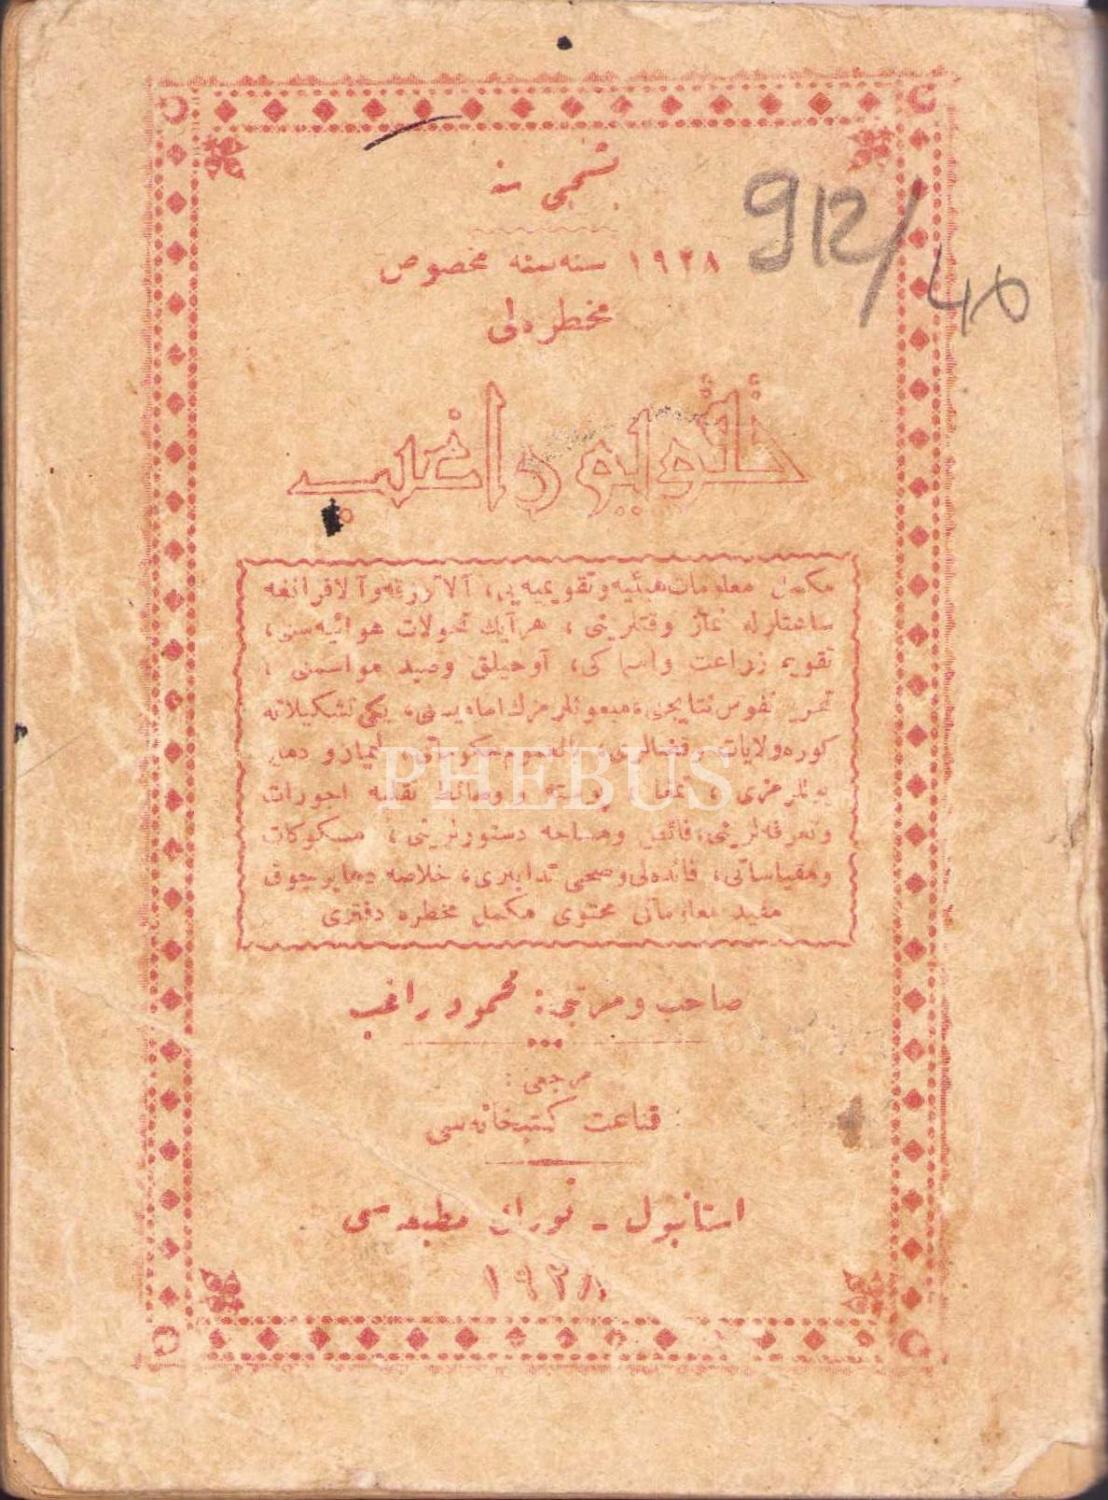 912/40
١٩٢٨ سنه سنه مخصوص
مخطره‌لی
تقویم راغب
مكمل معلومات هیئیه و تقویمیه‌یی، آلاتورقه و آلافرانغه
ساعتلرله نماز وقتلرینی، هر آیك تحولات هوائیه‌سنی،
تقویم زراعت واسماكی، آوجیلق وصید مواسمنی،
تحریر نفوس نتایجی، مبعوثلرمزك اسامیسنی، یكی تشكیلاته
كوره ولایات وقضالری،
PHEBUS
یوللرمزی، پوسته و وسائط نقلیه اجورات
وتعرفه‌لرینی، فائض ومساحه دستورلرینی، مسكوكات
ومقیاساتی، فائده‌لی وصحی تدابیری، خلاصه دها برچوق
مفید معلوماتی محتوی مكمل مخطره دفتری
صاحب و مرتبی: محمود راغب
مرجعی:
قناعت كتبخانه‌سی
استانبول - توران مطبعه‌سی
١٩٢٨